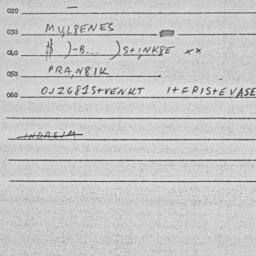 020 —
030 MYLPENES
040 $ )-B... ) S+INK8E xx
050 PRAN8IK
060 OJZ681S+VENKT I+FRIS+EVASE
INDREJA